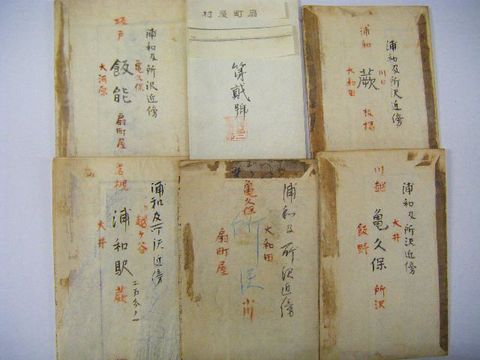 浦和及所沢近傍
坂戸
亀久保
飯能
大河原
扇町屋
村屋町扇
第貳號
浦和及所沢近傍
浦和
川口
蕨
大和田
板橋
浦和及所沢近傍
岩槻
越ヶ谷
浦和駅
大井
蕨
二万分ノ一
浦和及所沢近傍
亀久保
大和田
所沢
扇町屋
浦和及所沢近傍
川越
大井
亀久保
飯野
所沢